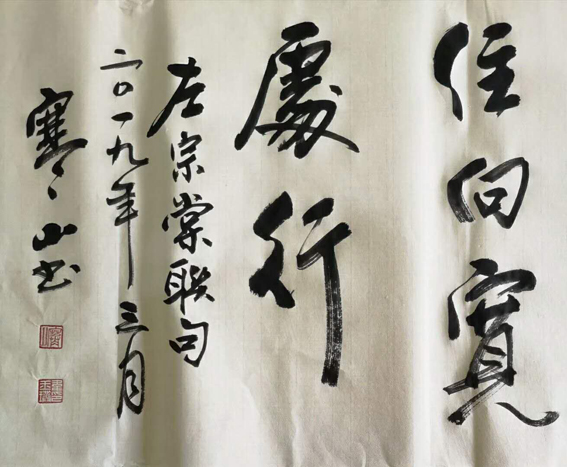 住向寬
處行
左宗棠聯句
二〇一九年三月
寒山书